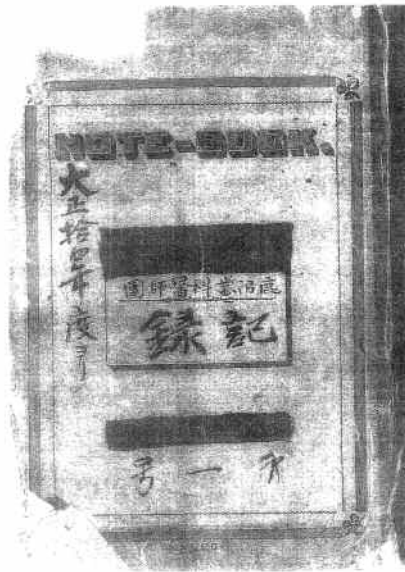 NOTE-BOOK.
大正拾四年度ヨリ
鹿沼齒科醫師團
記録
第一号